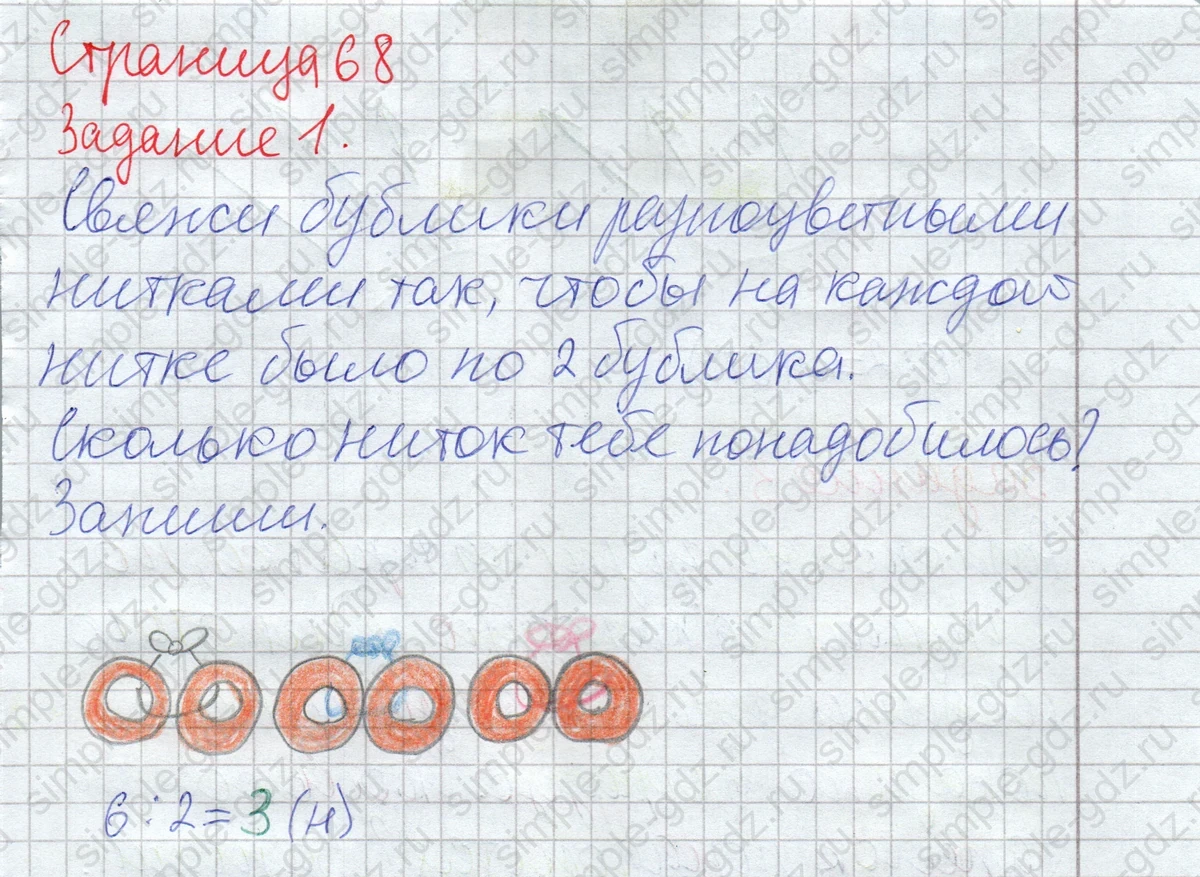 Страница 68
Задание 1.
Свяжи бублики разноцветными
нитками так, чтобы на каждой
нитке было по 2 бублика.
Сколько ниток тебе понадобилось?
Запиши.
6 : 2 = 3 (н)
simple-gdz.ru